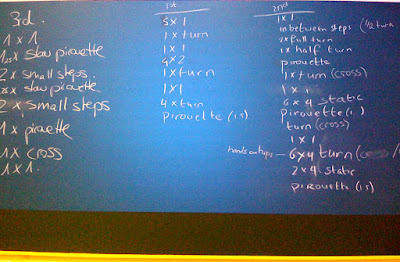 3rd.
1 x 1
slow pirouette
2 x small steps
slow pirouette
2 x small steps
1 x pirouette
1 x cross
1 x 1.
1st
5 x 1
1 x turn
1 x 1
4 x 2
1 x turn
1 x 1
4 x turn
Pirouette (1.5)
2nd
1 x 1
in between steps (1/2 turn
2 x full turn
1 x half turn
pirouette
1 x turn (cross)
1 x 1
6 x 4 static
Pirouette (1
turn (cross)
1 x 1
hands on hips - 6x4 turn
2 x 4 static
pirouette (1.5)